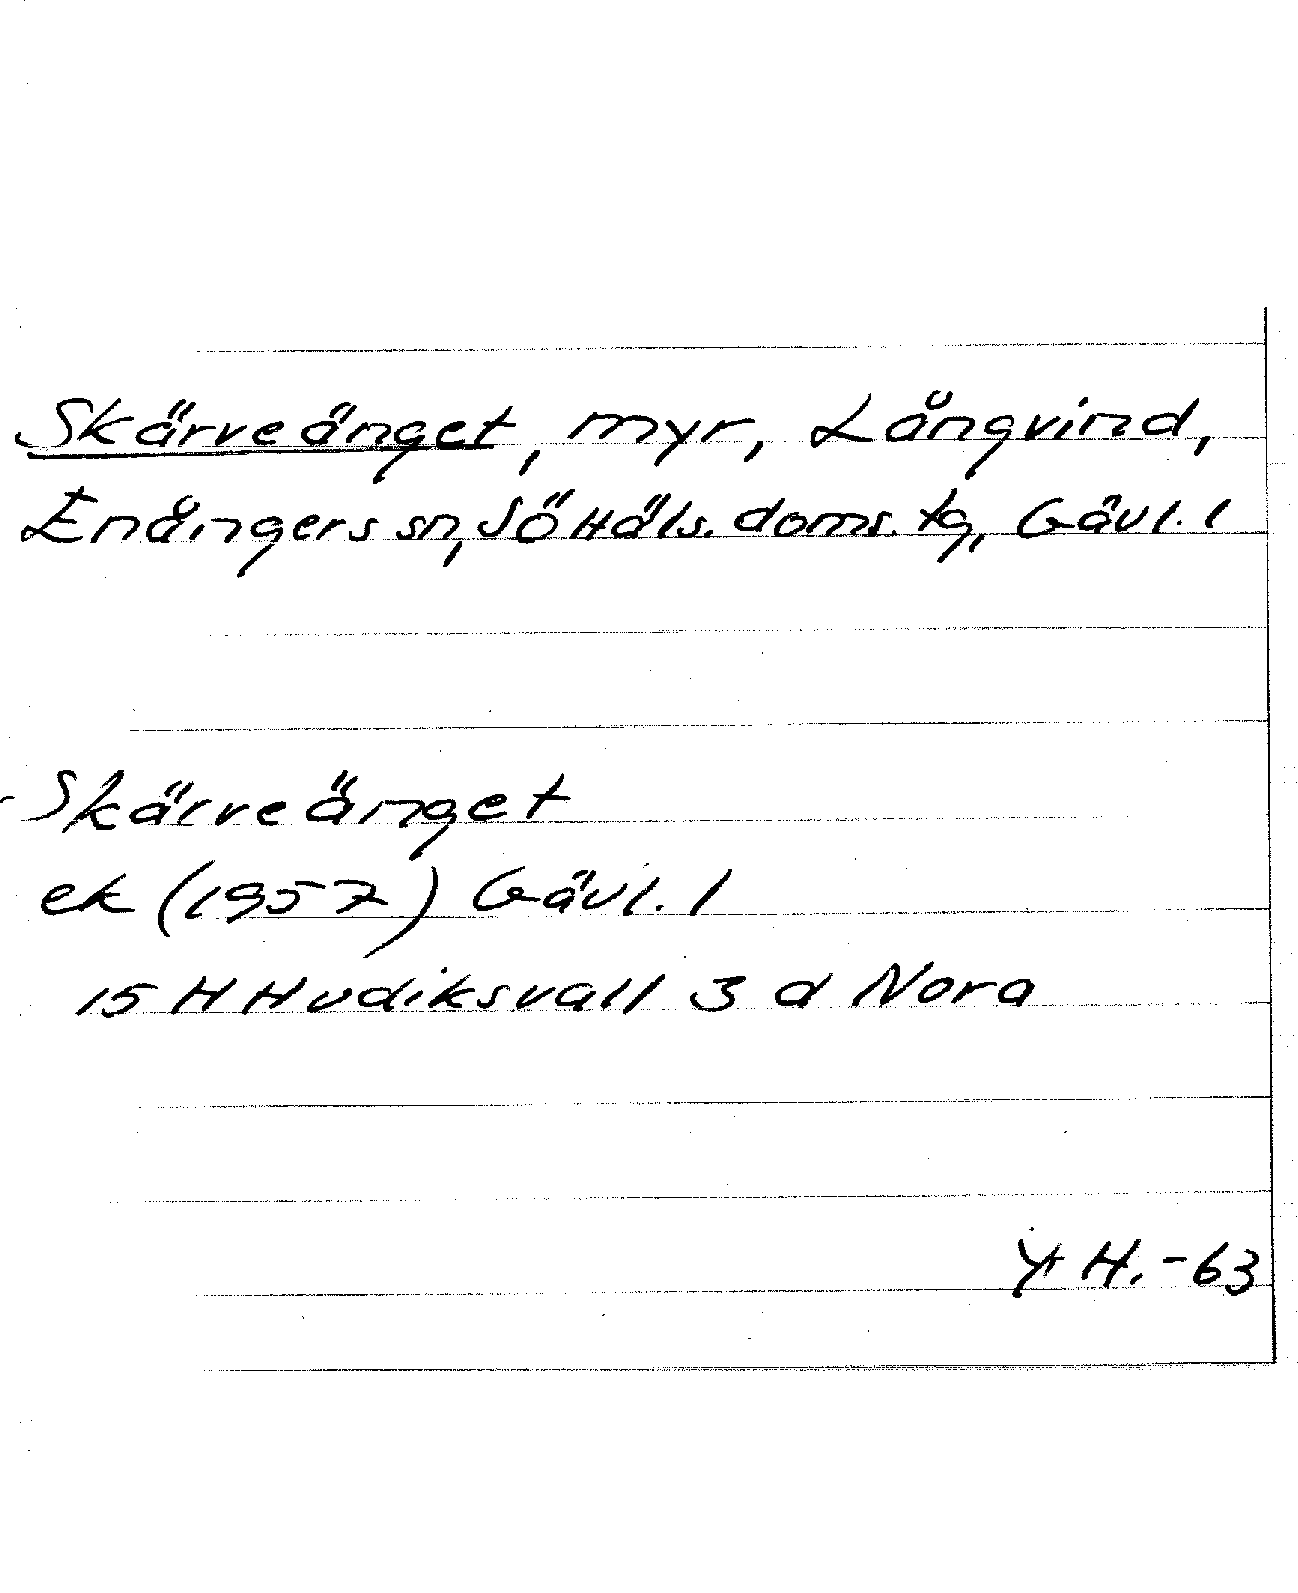 Skärveänget, myr, Långvind,
Enångers sn, Sö Häls. doms. tg, Gävl. l
Skärveänget
ek (1957) Gävl. l
15 H Hudiksvall 3 d Nora
H. -63